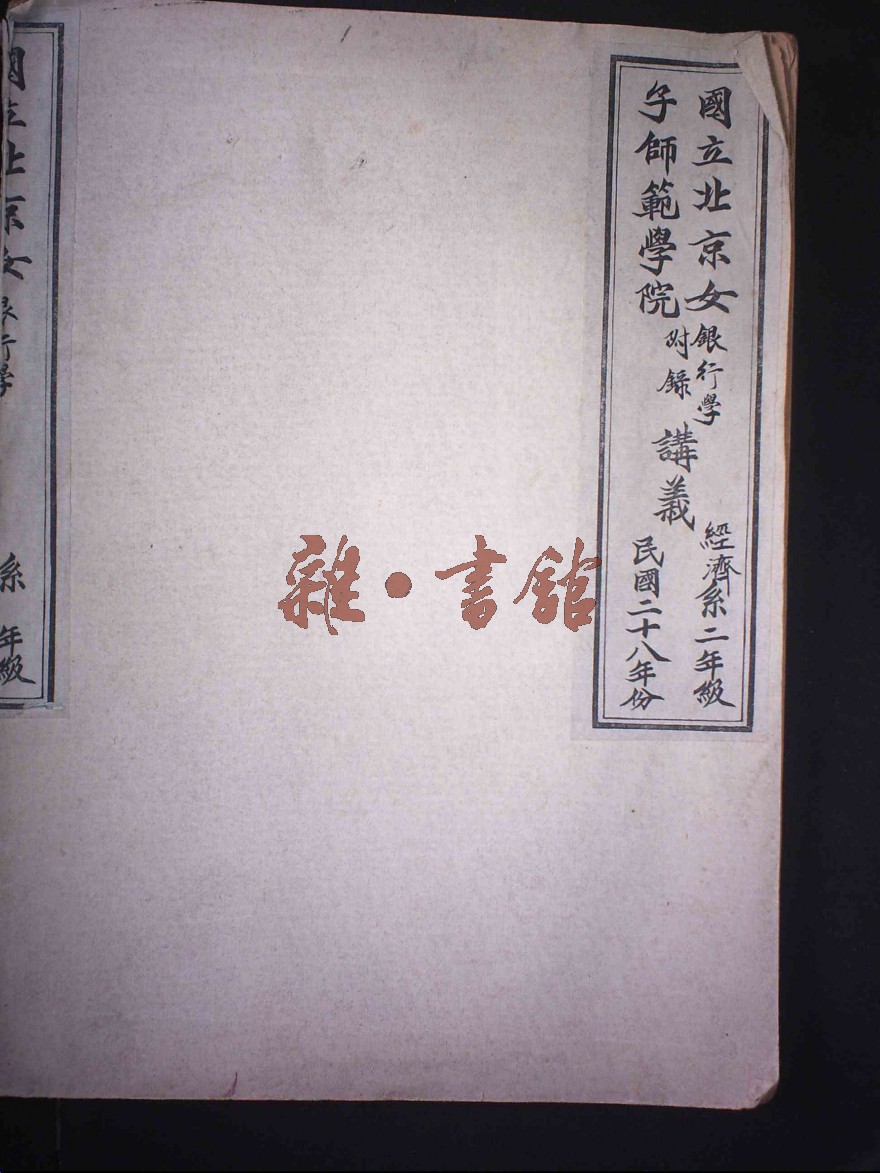 國立北京女
子師範學院
銀行學
附錄
講義
經濟系二年級
民國二十八年份
雜·書館
國立北京女
銀行學
系 年級